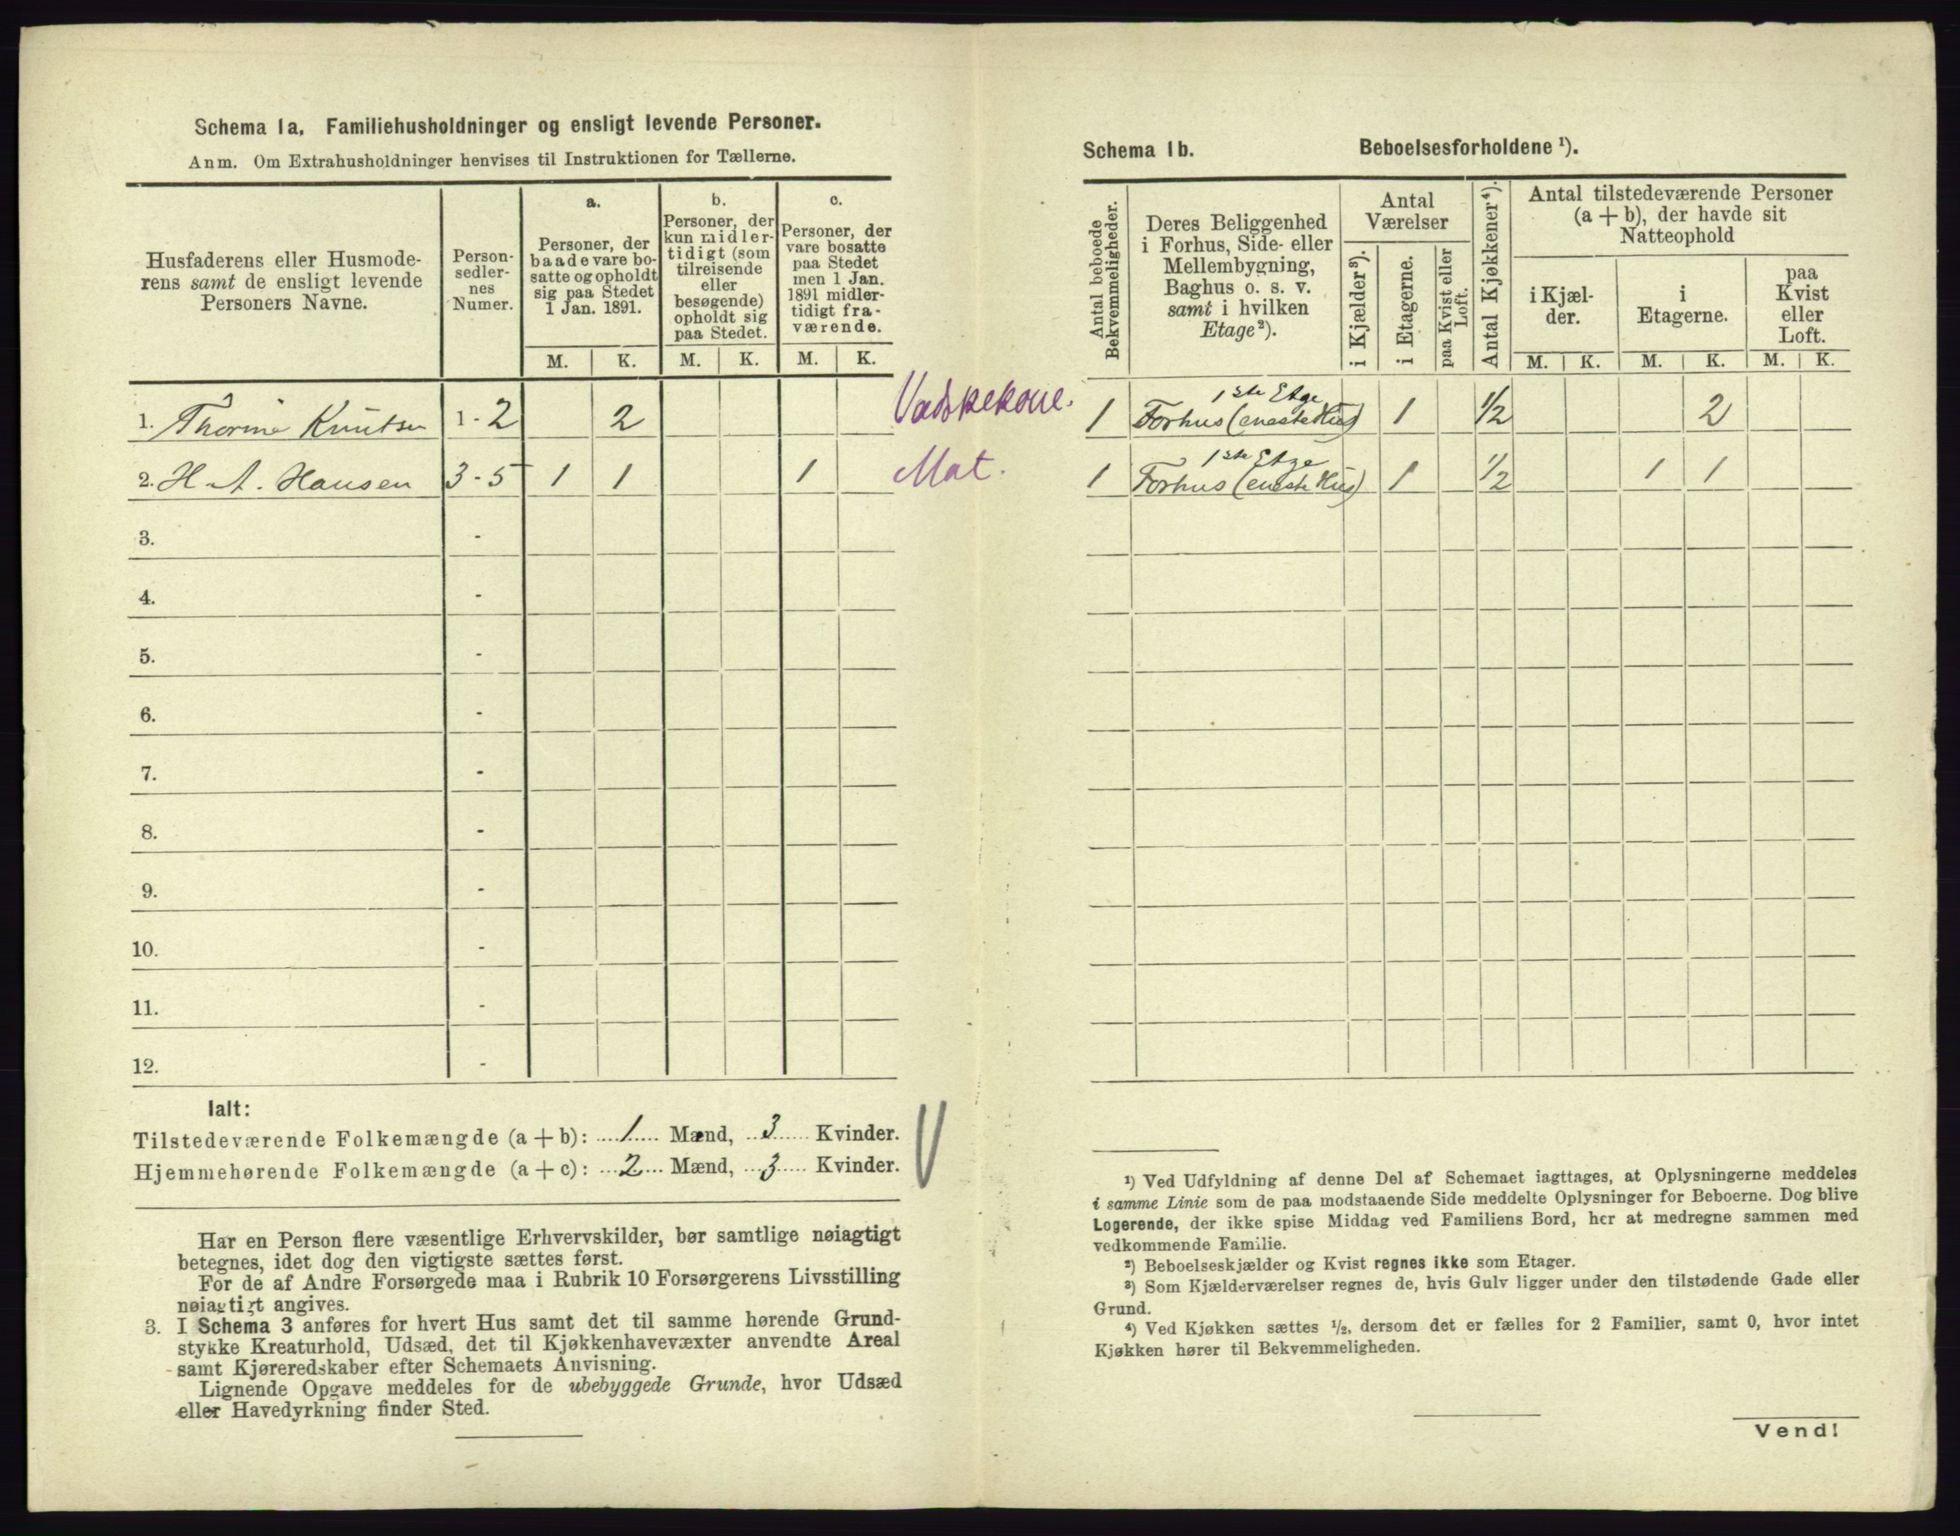 Schema 1a. Familiehusholdninger og ensligt levende Personer.
Anm. Om Extrahusholdninger henvises til Instruktionen for Tællerne.
Husfaderens eller Husmode-
rens samt de ensligt levende
Personers Navne.
Person-
sedler-
nes
Numer.
a.
Personer, der
baade vare bo-
satte og opholdt
sig paa Stedet
1 Jan. 1891.
b.
Personer, der
kun midler-
tidigt (som
tilreisende
eller
besøgende)
opholdt sig
paa Stedet.
c.
Personer, der
vare bosatte
paa Stedet
men 1 Jan.
1891 midler-
tidigt fra-
værende.
M. K. M. K. M. K.
1. Thorine Knutsen 1-2 2 Vadskekone.
2. H. A. Hansen 3-5 1 1 1 Mat.
3. -
4. -
5. -
6. -
7. -
8. -
9. -
10. -
11. -
12. -
Ialt:
Tilstedeværende Folkemængde (a+b): 1 Mænd, 3 Kvinder.
Hjemmehørende Folkemængde (a+c): 2 Mænd, 3 Kvinder.
Har en Person flere væsentlige Erhvervskilder, bør samtlige nøiagtigt
betegnes, idet dog den vigtigste sættes først.
For de af Andre Forsørgede maa i Rubrik 10 Forsørgerens Livsstilling
nøiagtigt angives.
3. I Schema 3 anføres for hvert Hus samt det til samme hørende Grund-
stykke Kreaturhold, Udsæd, det til Kjøkkenhavevæxter anvendte Areal
samt Kjøreredskaber efter Schemaets Anvisning.
Lignende Opgave meddeles for de ubebyggede Grunde, hvor Udsæd
eller Havedyrkning finder Sted.
Schema 1b. Beboelsesforholdene ¹).
Antal beboede
Bekvemmeligheder.
Deres Beliggenhed
i Forhus, Side- eller
Mellembygning,
Baghus o. s. v.
samt i hvilken
Etage²).
Antal
Værelser
i Kjælder³).
i Etagerne.
paa Kvist eller
Loft.
Antal Kjøkkener⁴).
Antal tilstedeværende Personer
(a+b), der havde sit
Natteophold
i Kjæl-
der.
i
Etagerne.
paa
Kvist
eller
Loft.
M. K. M. K. M. K.
1ste Etge
1 Forhus (eneste Hus) 1 1/2 2
1ste Etge
1 Forhus (eneste Hus) 1 1/2 1 1
¹) Ved Udfyldning af denne Del af Schemaet iagttages, at Oplysningerne meddeles
i samme Linie som de paa modstaaende Side meddelte Oplysninger for Beboerne. Dog blive
Logerende, der ikke spise Middag ved Familiens Bord, her at medregne sammen med
vedkommende Familie.
²) Beboelseskjælder og Kvist regnes ikke som Etager.
³) Som Kjælderværelser regnes de, hvis Gulv ligger under den tilstødende Gade eller
Grund.
⁴) Ved Kjøkken sættes ½, dersom det er fælles for 2 Familier, samt 0, hvor intet
Kjøkken hører til Bekvemmeligheden.
Vend!